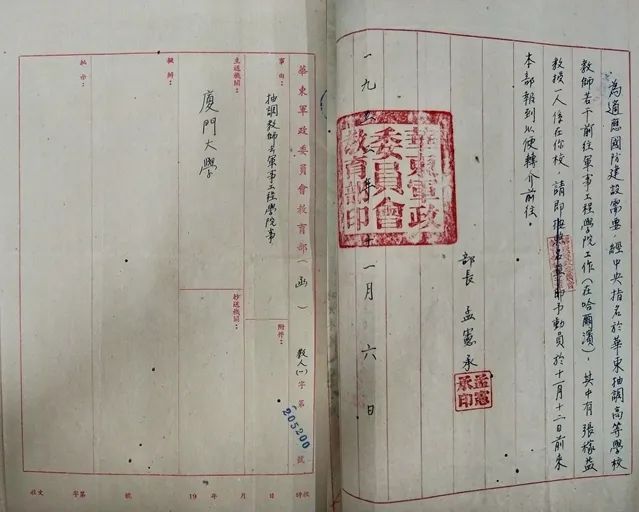 華東軍政委員會教育部（函） 教人(一)字第 205200 號
事由：抽調教師去軍事工程學院事
附件：
主送機關：
廈門大學
抄送機關：
擬辦：
批示：
字第 號 19 年 月 日
為適應國防建設需要，經中央指名於華東抽調高等學校
教師若干前往軍事工程學院工作（在哈爾濱），其中有張稼益
教授一人係在你校，請即予動員於十一月十二日前來
本部報到以便轉介前往。
部長 孟憲承
孟憲承印
一九五二年十一月六日
華東軍政委員會教育部印